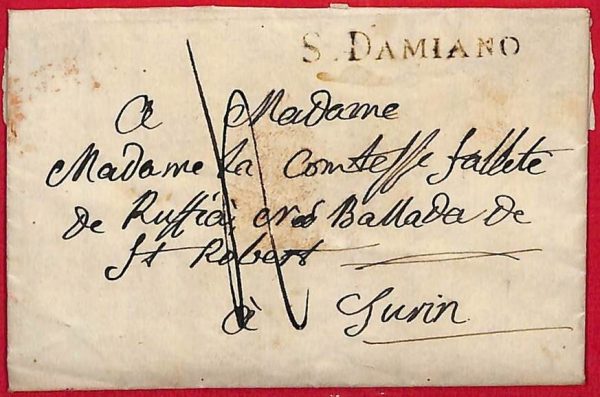 S. DAMIANO
A Madame
Madame la Comtesse fallete
de Ruffià Ballada de
St Robert
à Turin